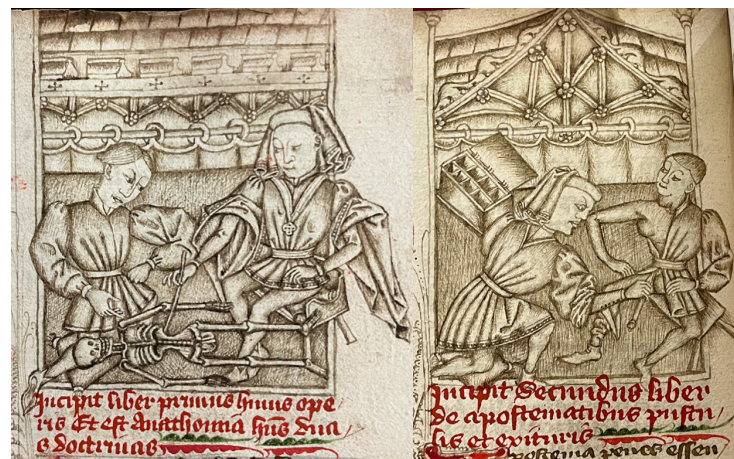 Incipit liber primus huius ope
ris Et est Anathomia hns dua
s doctrinas
Incipit Secundus liber
de apostematibus pustu
lis et exituris
postema penes essen